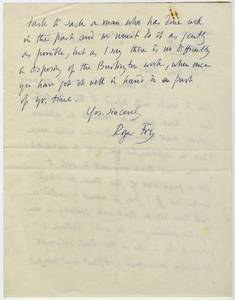 task to sack a man who has done well
in the past and we must do it as gently
as possible, but as I say there is no difficulty
in disposing of the Burlington work, when once
you have got it well in hand in a part
of yr. time.
Yrs. sincerely
Roger Fry